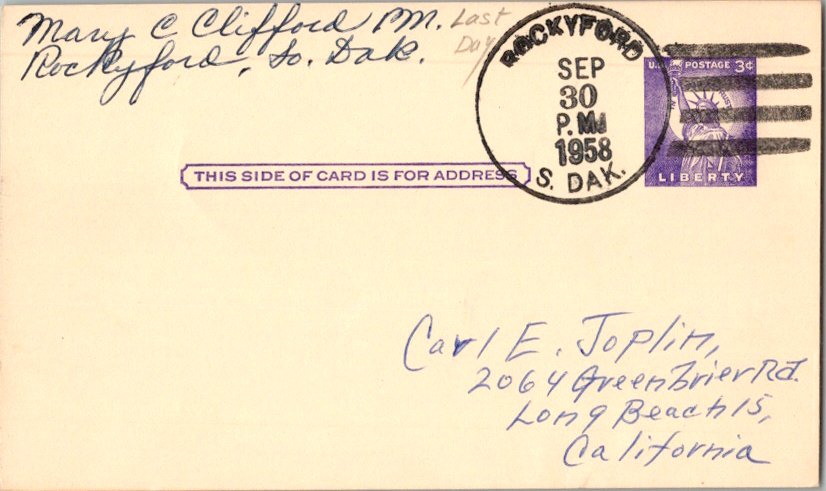 Mary C Clifford PM.
Rockyford, So. Dak.
Last
Day
ROCKYFORD
SEP
30
P.M.
1958
S. DAK.
U.S. POSTAGE 3¢
IN GOD WE TRUST
LIBERTY
THIS SIDE OF CARD IS FOR ADDRESS
Carl E. Joplin,
2064 Greenbrier Rd.
Long Beach 15,
California